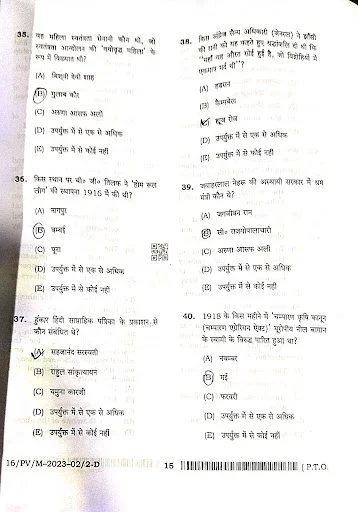 35. यह महिला स्वतंत्रता सेनानी कौन थी, जो
स्वतंत्रता आन्दोलन की 'वयोवृद्ध महिला' के
रूप में विख्यात थी?
(A)
(B) गुलाब कौर
(C) अरुणा आसफ अली
(D) उपर्युक्त में से एक से अधिक
(E) उपर्युक्त में से कोई नहीं
36. किस स्थान पर बी० जी० तिलक ने 'होम रूल
लीग' की स्थापना 1916 में की थी?
(A) नागपुर
(B) बम्बई
(C) पूना
(D) उपर्युक्त में से एक से अधिक
(E) उपर्युक्त में से कोई नहीं
37. हुंकार हिंदी साप्ताहिक पत्रिका के प्रकाशन से
कौन संबंधित थे?
(A) सहजानंद सरस्वती
(B) राहुल सांकृत्यायन
(C) यमुना कारजी
(D) उपर्युक्त में से एक से अधिक
(E) उपर्युक्त में से कोई नहीं
38. किस अंग्रेज सैन्य अधिकारी (जेनरल) ने झाँसी
की रानी को यह कहते हुए श्रद्धांजलि दी थी कि
"यहाँ वह औरत सोई हुई है, जो विद्रोहियों में
एकमात्र मर्द थी"?
(A) हडसन
(B) कैम्पबेल
(C) ह्यूग रोज
(D) उपर्युक्त में से एक से अधिक
(E) उपर्युक्त में से कोई नहीं
39. जवाहरलाल नेहरू की अस्थायी सरकार में श्रम
मंत्री कौन थे?
(A) जगजीवन राम
(B) सी० राजगोपालाचारी
(C) अरुणा आसफ अली
(D) उपर्युक्त में से एक से अधिक
(E) उपर्युक्त में से कोई नहीं
40. 1918 के किस महीने में 'चम्पारण कृषि कानून
(चम्पारण एग्रेरियन ऐक्ट)' यूरोपीय नील बागान
के स्वामी के विरुद्ध पारित हुआ था?
(A) नवम्बर
(B) मई
(C) फरवरी
(D) उपर्युक्त में से एक से अधिक
(E) उपर्युक्त में से कोई नहीं
16/PV/M-2023-02/2-D
15
[ P.T.O.